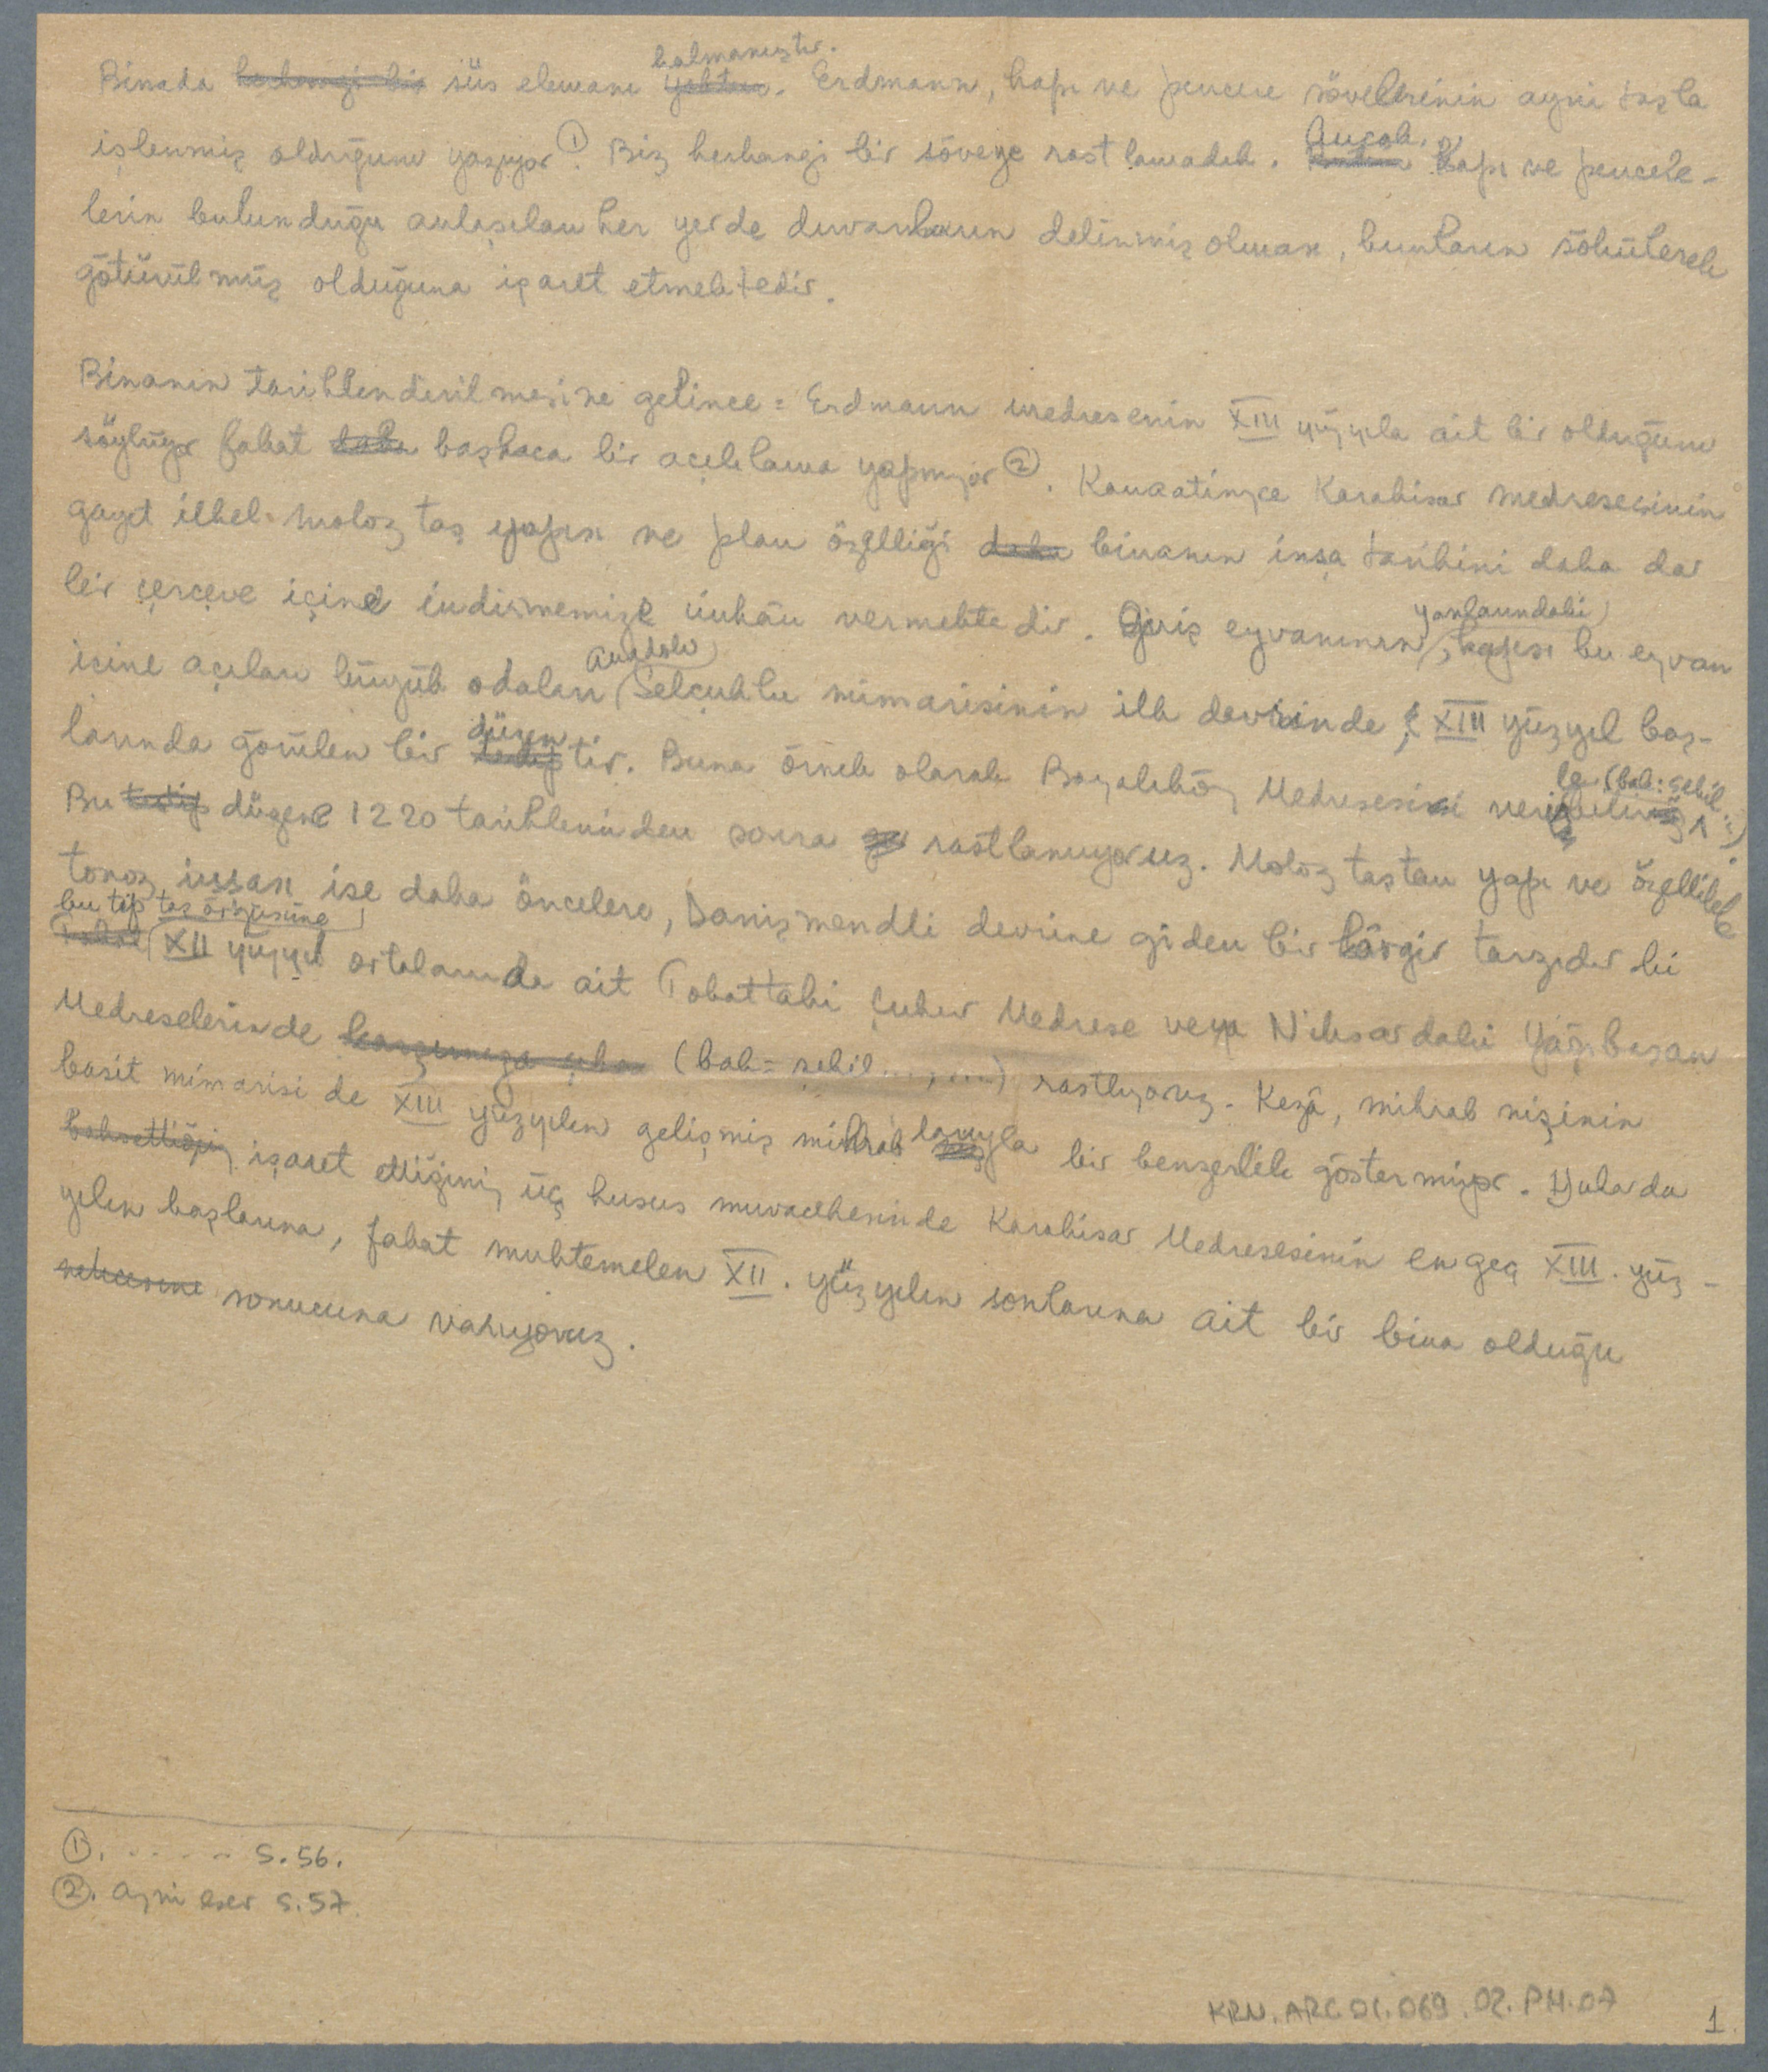 Binada herhangi bir süs elemanı yoktur. kalmamıştır. Erdmann, kapı ve pencere sövelerinin ayni taşla
işlenmiş olduğunu yazıyor ①. Biz herhangi bir söveye rastlamadık. Ancak, Kapı ve pencere-
lerin bulunduğu anlaşılan her yerde duvarların delinmiş olması, bunların sökülerek
götürülmüş olduğuna işaret etmektedir.
Binanın tarihlendirilmesine gelince: Erdmann medresenin XIII yüzyıla ait bir olduğunu
söylüyor fakat daha başkaca bir açıklama yapmıyor ②. Kanaatimizce Karahisar medresesinin
gayet ilkel moloz taş yapısı ve plan özelliği daha binanın inşa tarihini daha dar
bir çerçeve içine indirmemize imkân vermektedir. Giriş eyvanının yanlarındaki, kapısı bu eyvan
içine açılan büyük odaları Anadolu Selçuklu mimarisinin ilk devrinde, XIII yüzyıl baş-
larında görülen bir tertip düzen tir. Buna örnek olarak Boyalıköy Medresesini
(bak: şekil..)
Bu tertip düzene 1220 tarihlerinden sonra rastlamıyoruz. Moloz taştan yapı ve özellikle
tonoz inşası ise daha öncelere, Danişmendli devrine giden bir kârgir tarzıdır ki
bu tip taş örgüsüne XII yüzyıl ortalarında ait Tokattaki Çukur Medrese veya Niksardaki Yağıbasan
Medreselerinde (bak: şekil ...., ....) rastlıyoruz. Kezâ, mihrab nişinin
basit mimarisi de XIII yüzyılın gelişmiş mihrablarıyla bir benzerlik göstermiyor. Yukarda
bahsettiğimiz işaret ettiğimiz üç husus muvacehesinde Karahisar Medresesinin en geç XIII. yüz-
yılın başlarına, fakat muhtemelen XII. yüzyılın sonlarına ait bir bina olduğu
neticesine sonucuna varıyoruz.
①. - - - - - S. 56.
②. Ayni eser S. 57.
KRN.ARC.01.069.02.PH.07
1